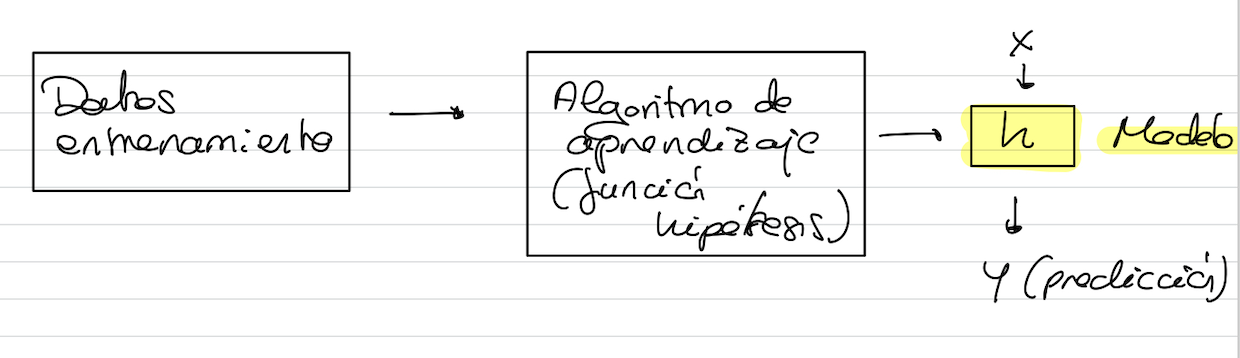 Datos
entrenamiento
Algoritmo de
aprendizaje
(función
hipótesis)
x
h
Modelo
y (predicción)